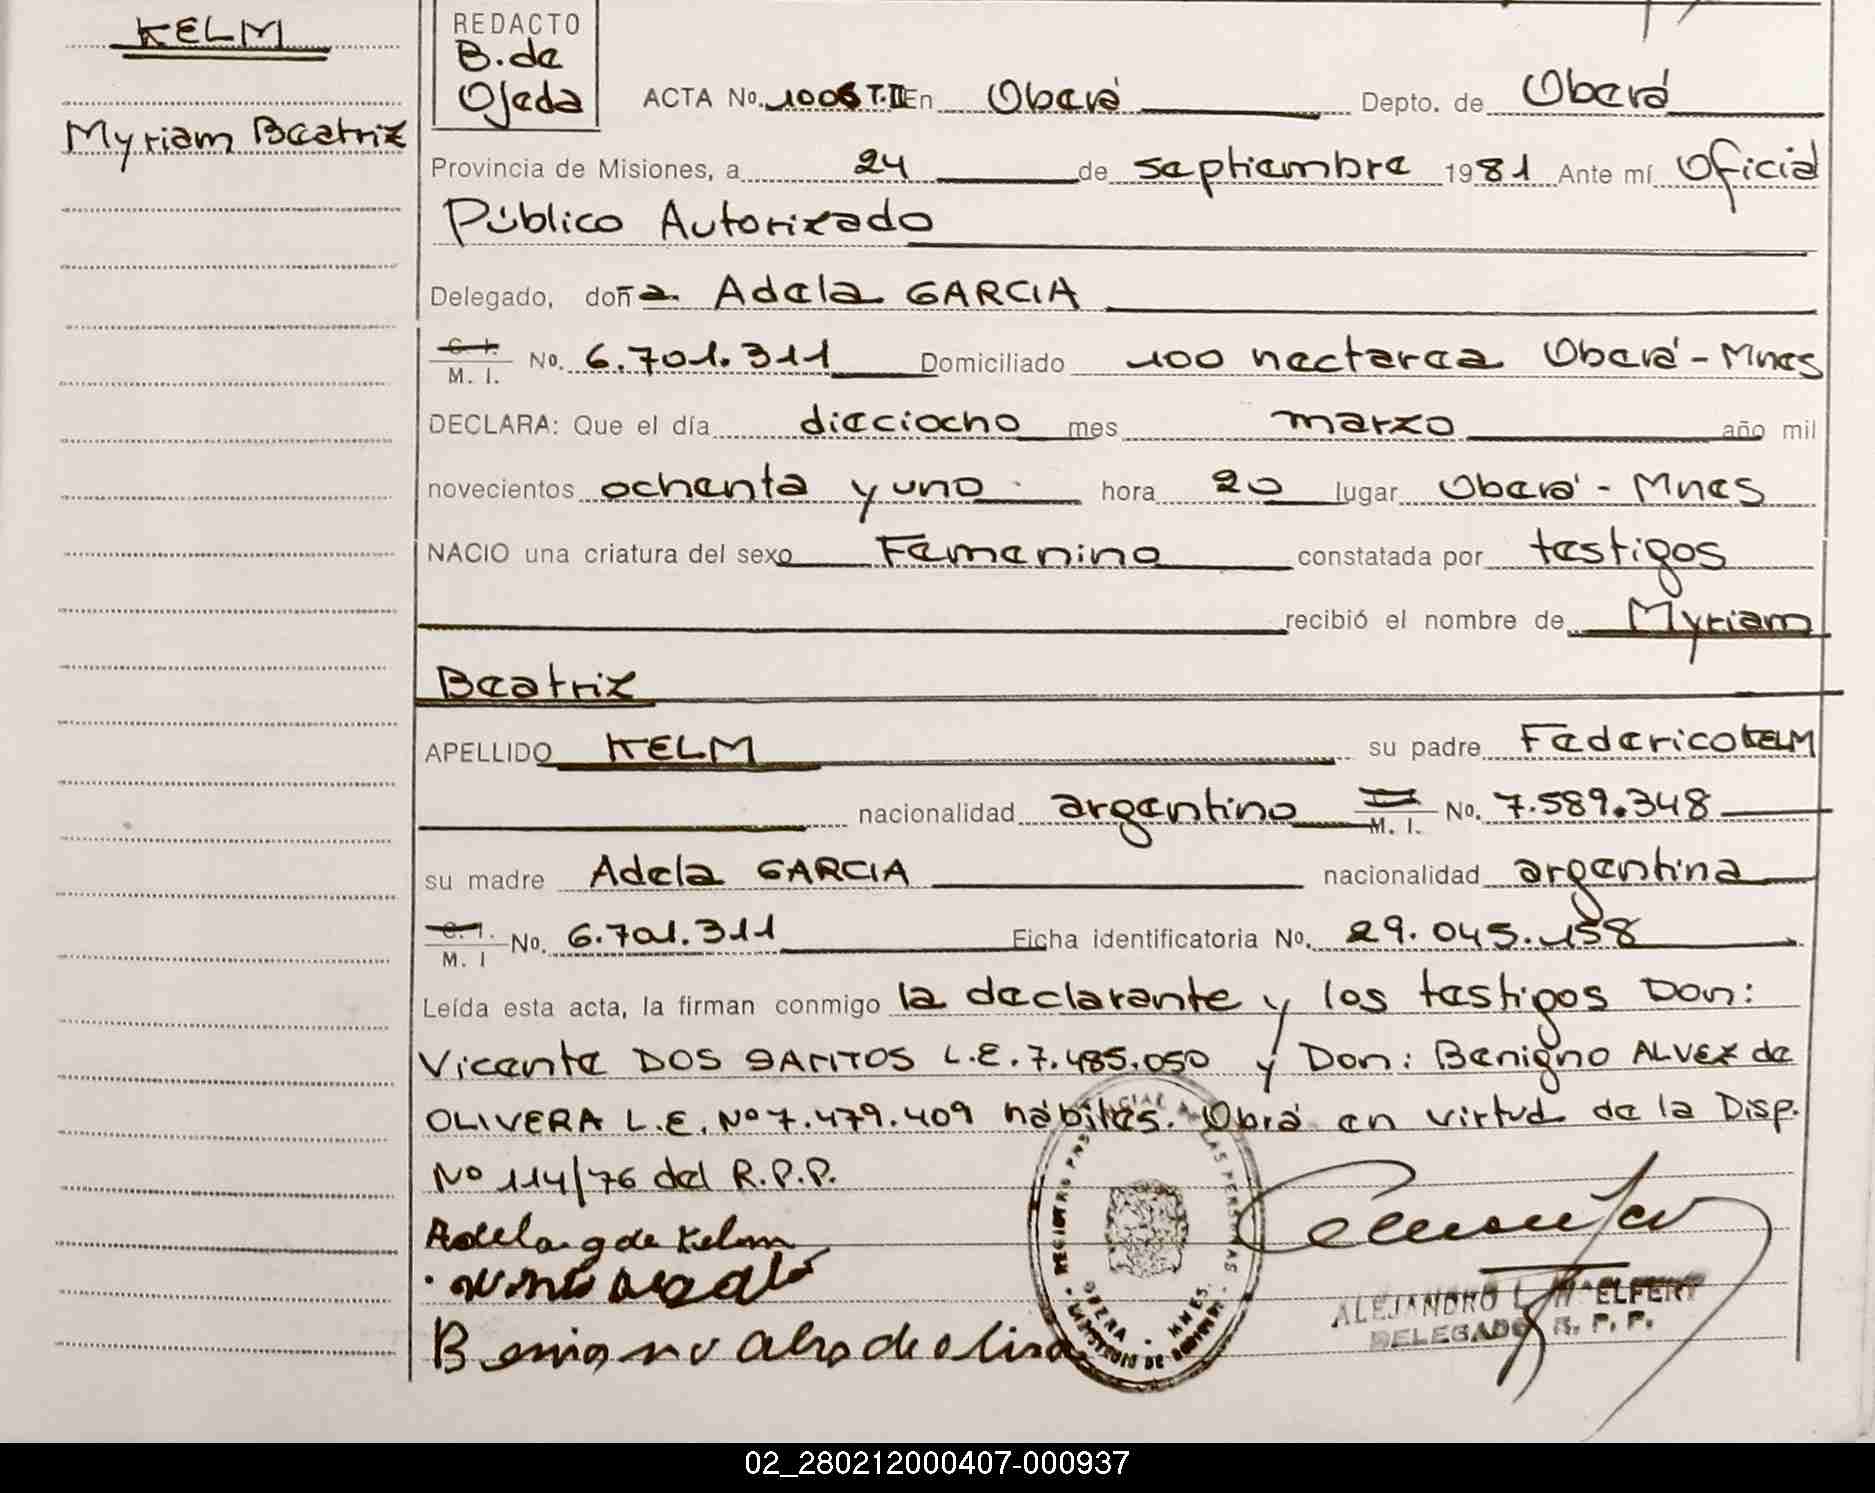 KELM
Myriam Beatriz
REDACTO
B. de
Ojeda
ACTA No. 1006 T.II En Oberá Depto. de Oberá
Provincia de Misiones, a 24 de septiembre 1981 Ante mí Oficial
Público Autorizado
Delegado, doña Adela GARCIA
C. I.
M. I. No. 6.701.311 Domiciliado 100 hectarea Oberá - Mnes
DECLARA: Que el día dieciocho mes marzo año mil
novecientos ochenta y uno hora 20 lugar Oberá - Mnes
NACIO una criatura del sexo Femenino constatada por testigos
recibió el nombre de Myriam
Beatriz
APELLIDO KELM su padre Federico KELM
nacionalidad argentino M. I. No. 7.589.348
su madre Adela GARCIA nacionalidad argentina
C. I.
M. I No. 6.701.311 Ficha identificatoria No. 29.045.158
Leída esta acta, la firman conmigo la declarante y los testigos Don:
Vicente DOS SANTOS L.E. 7.485.050 y Don: Benigno ALVEZ de
OLIVERA L.E. Nº 7.479.409 hábiles. Obra en virtud de la Disp.
Nº 114/76 del R.P.P.
Adela g de Kelm
ALEJANDRO L.
DELEGADO R. P. P.
02_280212000407-000937